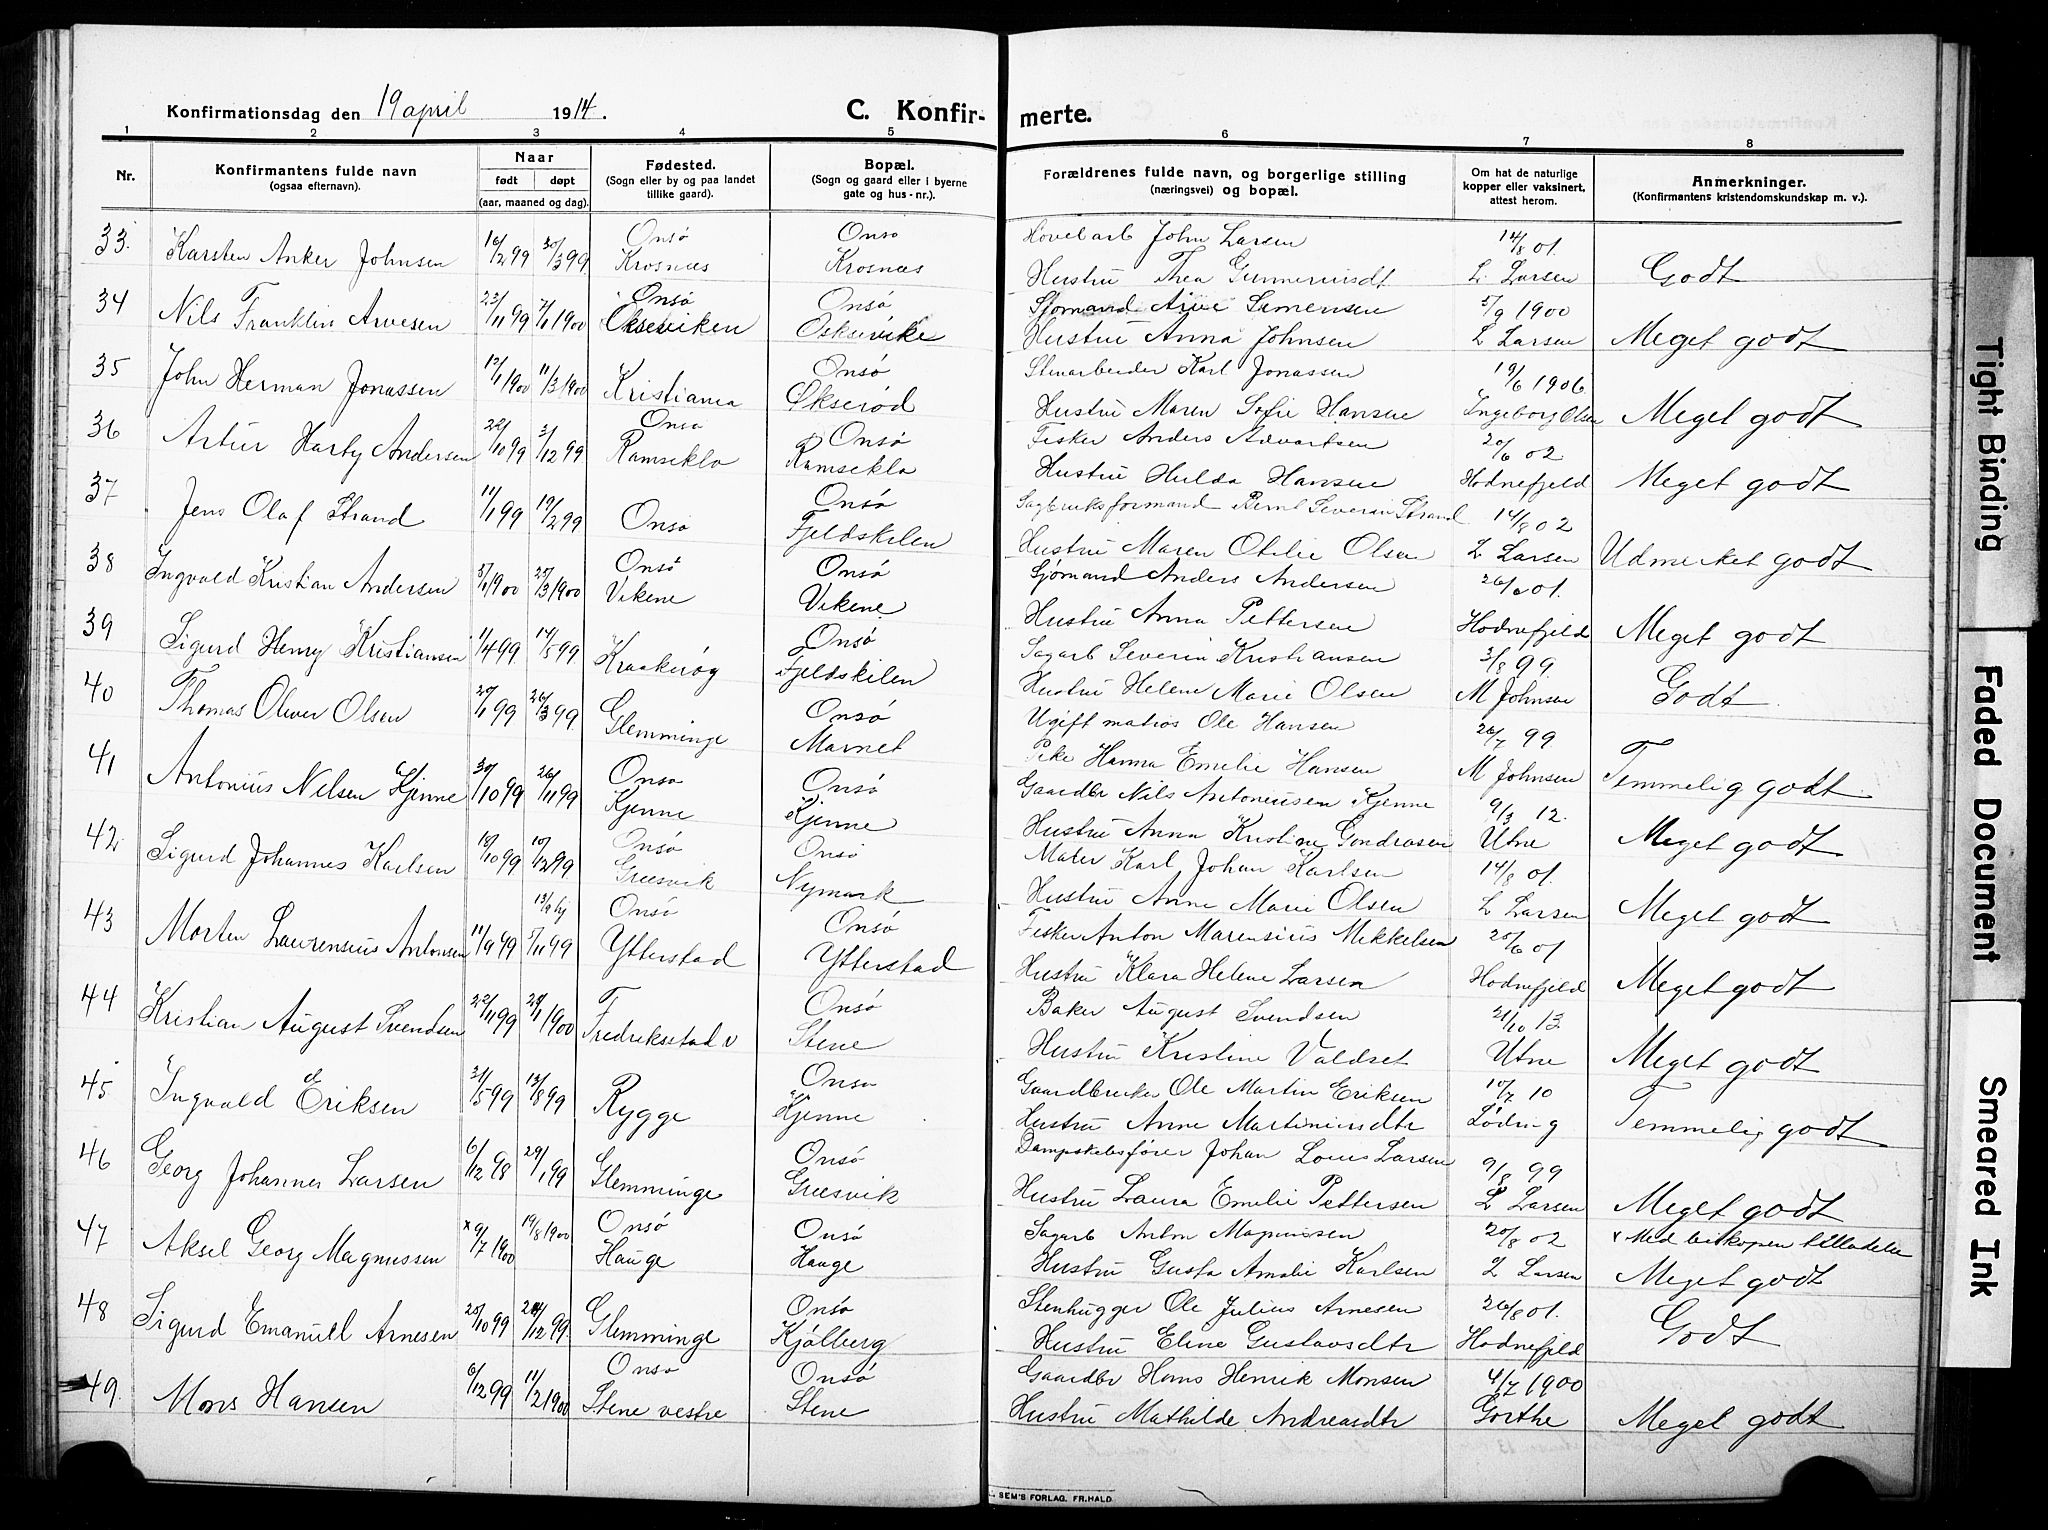 Konfirmationsdag den 19 april 1914. C. Konfir- merte.
1 2 3 4 5 6 7 8
Nr. Konfirmantens fulde navn (ogsaa efternavn). Naar født døpt (aar, maaned og dag). Fødested. (Sogn eller by og paa landet tillike gaard). Bopæl. (Sogn og gaard eller i byerne gate og hus-nr.). Forældrenes fulde navn, og borgerlige stilling (næringsvei) og bopæl. Om hat de naturlige kopper eller vaksinert, attest herom. Anmerkninger. (Konfirmantens kristendomskundskap m. v.).
33. Karsten Anker Johnsen 16/2 99 30/3 99 Onsø Krosnæs Onsø Krosnæs Hovelarb John Larsen 14/8 01.
Hustru Thea Gunneriusdt L. Larsen Godt
34 Nils Franklin Arvesen 23/11 99 7/1 1900 Onsø Økseviken Onsø Sjømand Arve 5/9 1900
Hustru Anna Johnsen L Larsen Meget godt
35 John Herman Jonassen 12/1 1900 11/3 1900 Kristiania Onsø Økserød Stenarbeider Karl Jonassen 19/6 1906
Hustru Maren Sofie Hansen Ingeborg Olsen Meget godt
36 Artur Harby Andersen 22/10 99 3/12 99 Onsø Ramseklo Onsø Ramseklo Fisker Anders Advartsen 20/6 02
Hustru Hulda Hansen Hodnefjeld Meget godt
37 Jens Olaf Strand 11/1 99 19/2 99 Onsø Onsø Fjeldskilen Sagbruksformand Bernt Severin Strand 14/8 02
Hustru Maren Otilie Olsen L Larsen Udmerket godt
38 Ingvald Kristian Andersen 3/1 1900 25/3 1900 Onsø Vikene Onsø Vikene Sjømand Anders Andersen 26/6 01.
Hustru Anna Pettersen Hodnefjeld Meget godt
39 Sigurd Henry Kristiansen 11/4 99 14/5 99 Kraakerøy Onsø Fjeldskilen Sagarb Severin Kristiansen 3/8 99.
Hustru Helene Marie Olsen M Johnsen Godt
40 Thomas Oliver Olsen 20/1 99 26/3 99 Glemminge Onsø Marnet Ugift matros Ole Hansen 26/7 99
Pike Hanna Emelie Hansen M Johnsen Temmelig godt
41 Antonius Nilsen Kjenne 30/10 99 26/11 99 Onsø Kjenne Onsø Kjenne Gaardbr Nils Antoniussen Kjenne 9/3 12.
Hustru Anna Kristine Utne Meget godt
42. Sigurd Johannes Karlsen 18/10 99 10/12 99 Onsø Gresvik Onsø Nymark Maler Karl Johan Karlsen 14/8 01.
Hustru Anne Marie Olsen L Larsen Meget godt
43 Morten Laurensius Antonsen 11/9 99 13/9 hj 5/11 99 Onsø Ytterstad Onsø Ytterstad Fisker Anton Marensius Mikkelsen 20/6 01
Hustru Klara Helene Larsen Hodnefjeld Meget godt
44 Kristian August Svendsen 22/11 99 28/1 1900 Fredrikstad v Onsø Stene Baker August Svendsen 21/10 13
Hustru Kristine Valdset Utne Meget godt
45 Ingvald Eriksen 31/5 99 13/8 99 Rygge Onsø Kjenne Gaardbruker Ole Martin Eriksen 10/7 10
Hustru Anne Martiniusdtr Lødrug Temmelig godt
46 Georg Johannes Larsen 6/12 98 29/1 99 Glemminge Onsø Gresvik Dampskibsfører Johan Louis Larsen 9/8 99
Hustru Laura Emelie Pettersen L Larsen Meget godt
47 Aksel Georg Magnussen x 9/7 1900 19/8 1900 Onsø Hauge Onsø Hauge Sagarb Anton Magnussen 20/8 02 x Med biskopens tilladelse
Hustru Gusta Amalie Karlsen L Larsen Meget godt
48 Sigurd Emanuell Arnesen 25/10 99 24/12 99. Glemminge Onsø Kjølberg Stenhugger Ole Julius Arnesen 26/8 01.
Hustru Eline Gustavsdtr Hodnefjeld Godt
49. Mons Hansen 6/12 99 11/2 1900 Onsø Stene vestre Onsø Stene Gaardbr Hans Henrik Monsen 4/7 1900
Hustru Mathilde Andreasdtr Gorthe Meget godt
SEM'S FORLAG, FR.HALD
Tight Binding
Faded Document
Smeared Ink